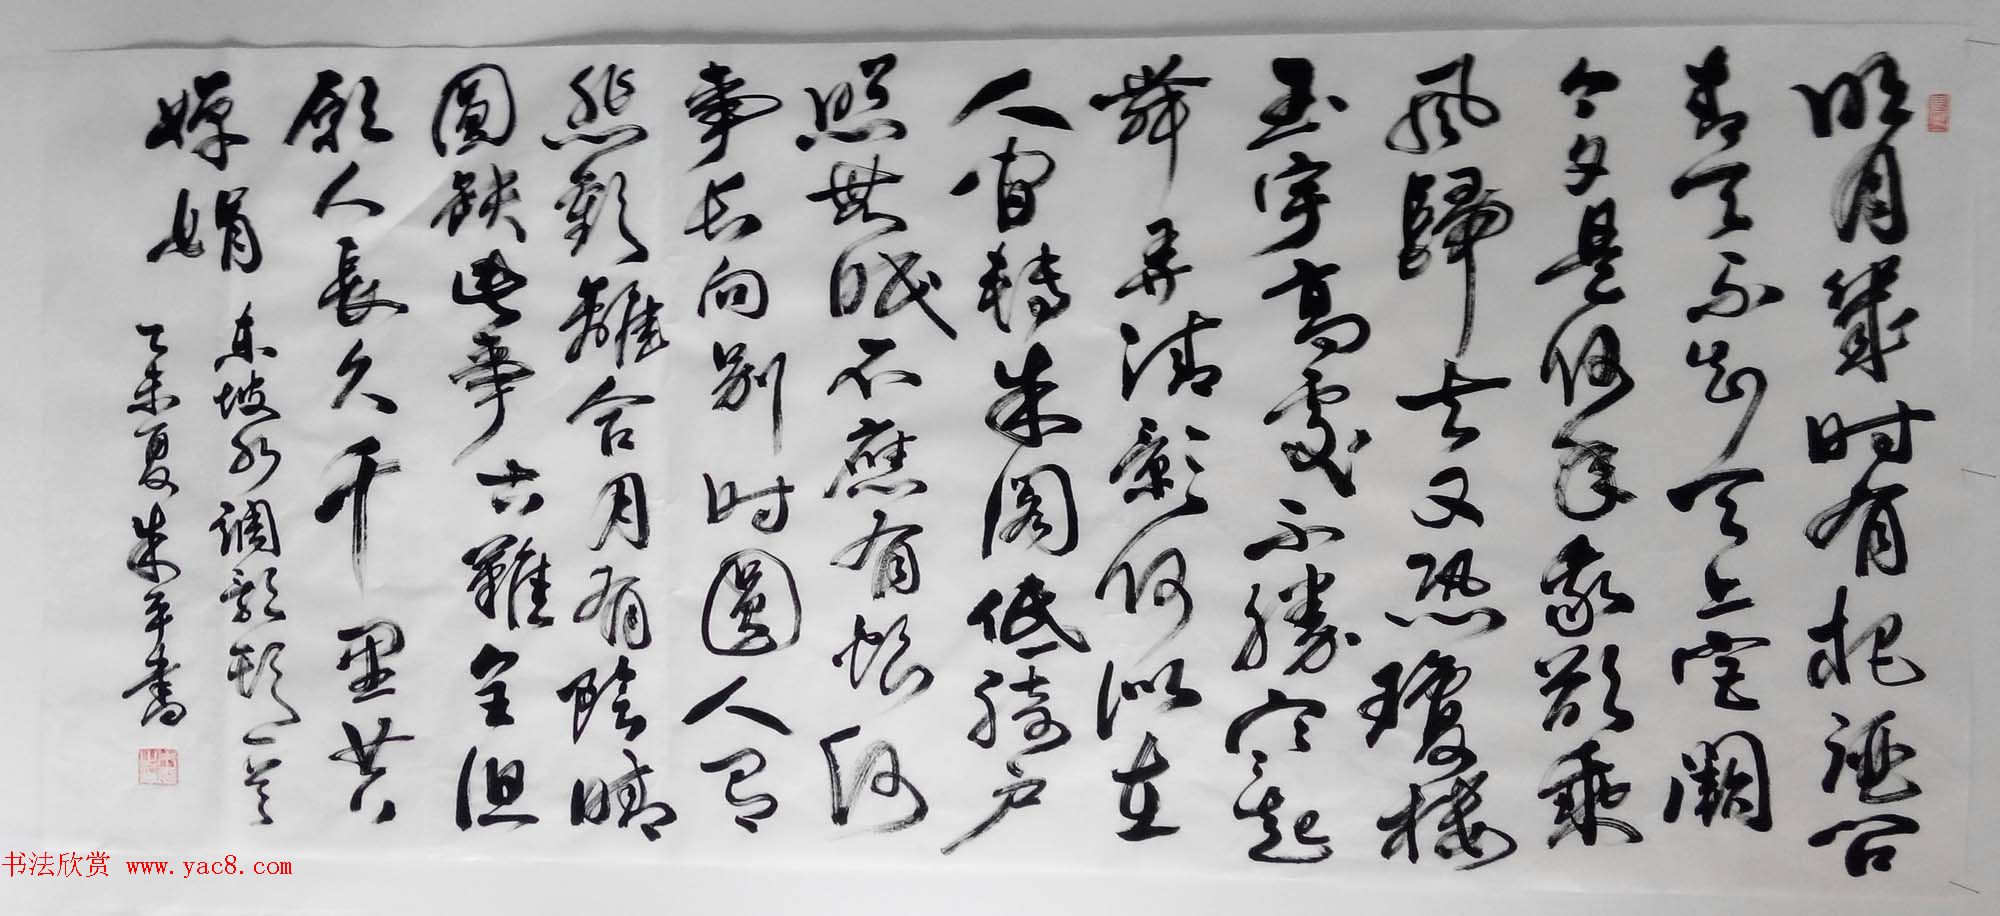 明月幾时有把酒问
青天不知天上宫闕
今夕是何年我欲乘
風歸去又恐瓊楼
玉宇高處不勝寒起
舞弄清影何似在
人间轉朱阁低绮户
照無眠不應有恨何
事长向别时圓人有
悲歡離合月有陰晴
圓缺此事古難全但
願人長久千里共
嬋娟 东坡水调歌頭一首
乙未夏朱平書
书法欣赏 www.yac8.com